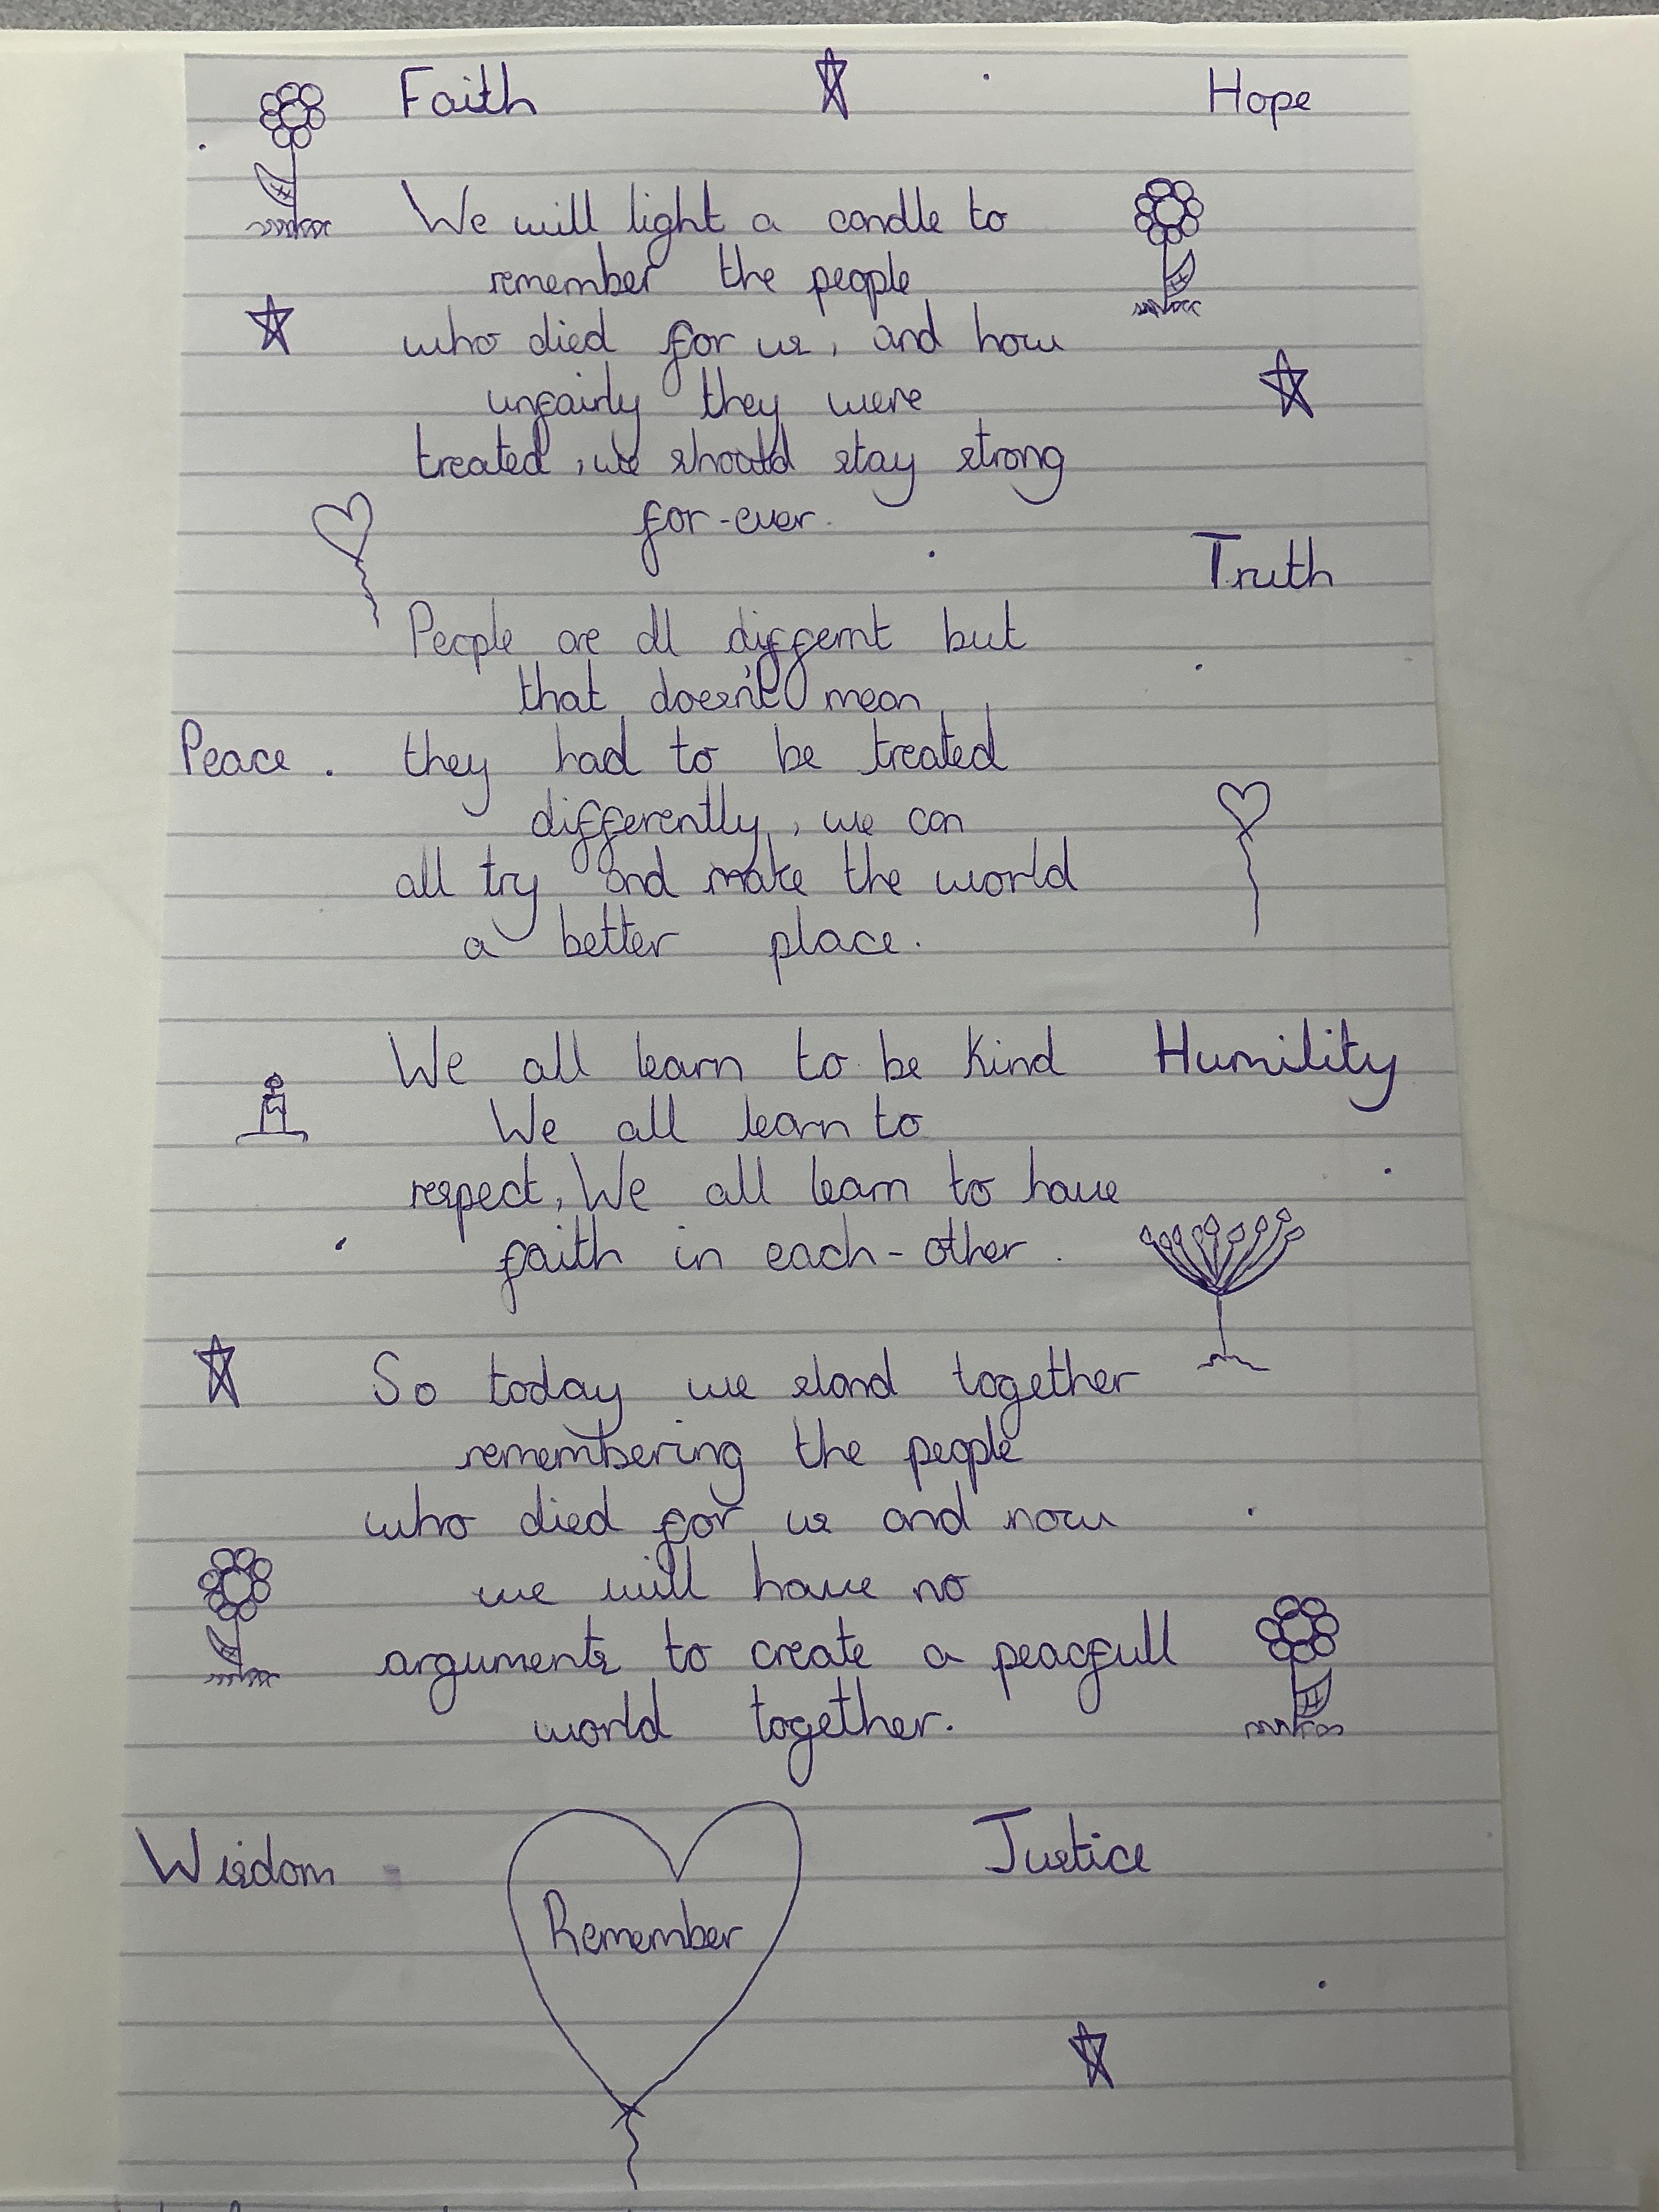 Faith Hope
We will light a candle to
remember the people
who died for us, and how
unfairly they were
treated, we should stay strong
for-ever.
Truth
People are all differnt but
that doesn't mean
Peace. they had to be treated
differently, we can
all try and make the world
a better place.
We all learn to be kind Humility
We all learn to
respect, We all learn to have
faith in each-other.
So today we stand together
remembering the people
who died for us and now
we will have no
arguments to create a peacfull
world together.
Wisdom Justice
Remember